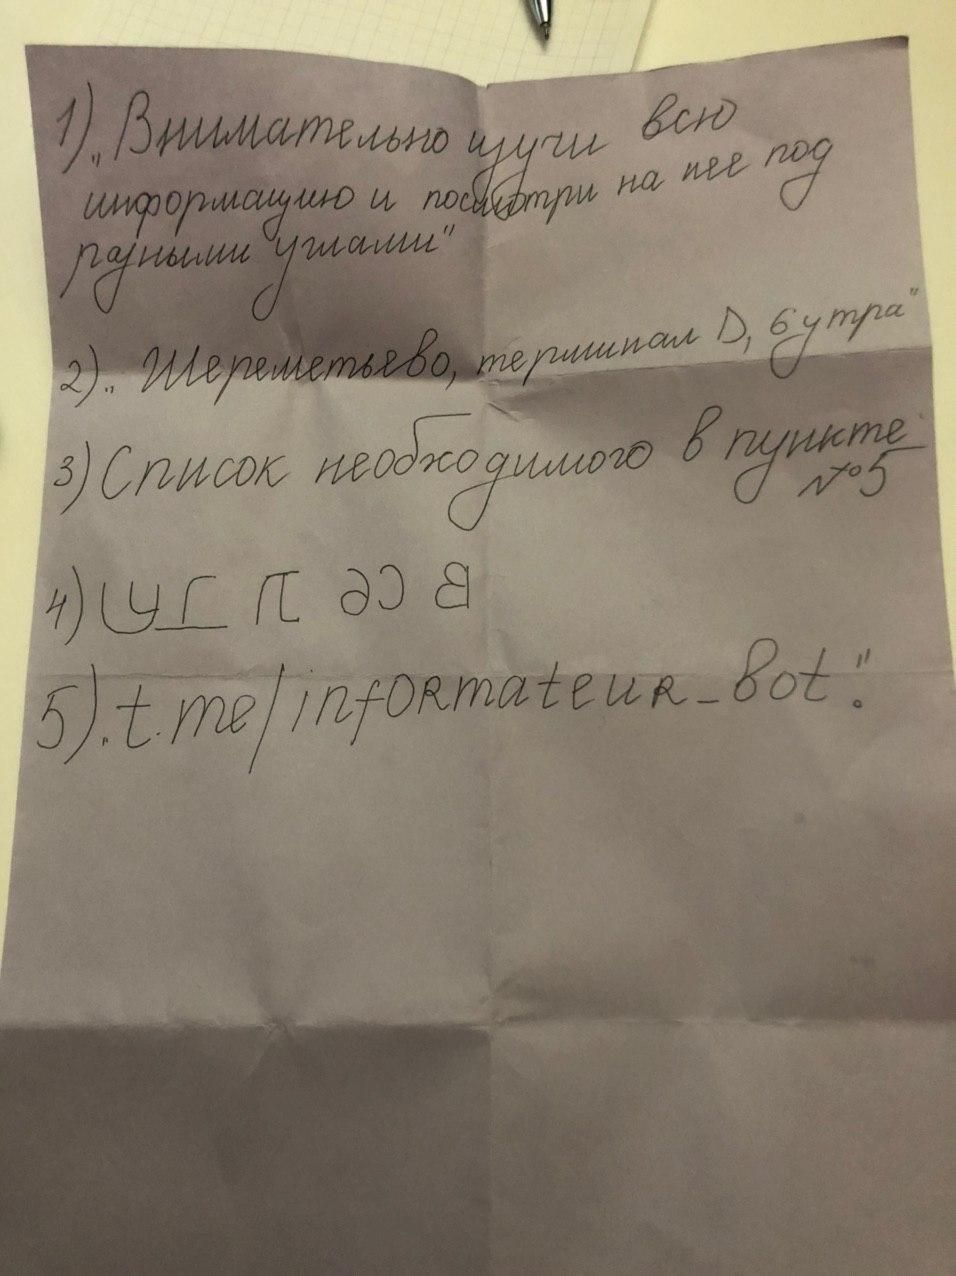 1) „Внимательно изучи всю
информацию и посмотри на нее под
разными углами"
2) „Шереметьево, терминал D, 6 утра"
3) Список необходимого в пункте
№5
4)
5) „t.me/informateur_bot".